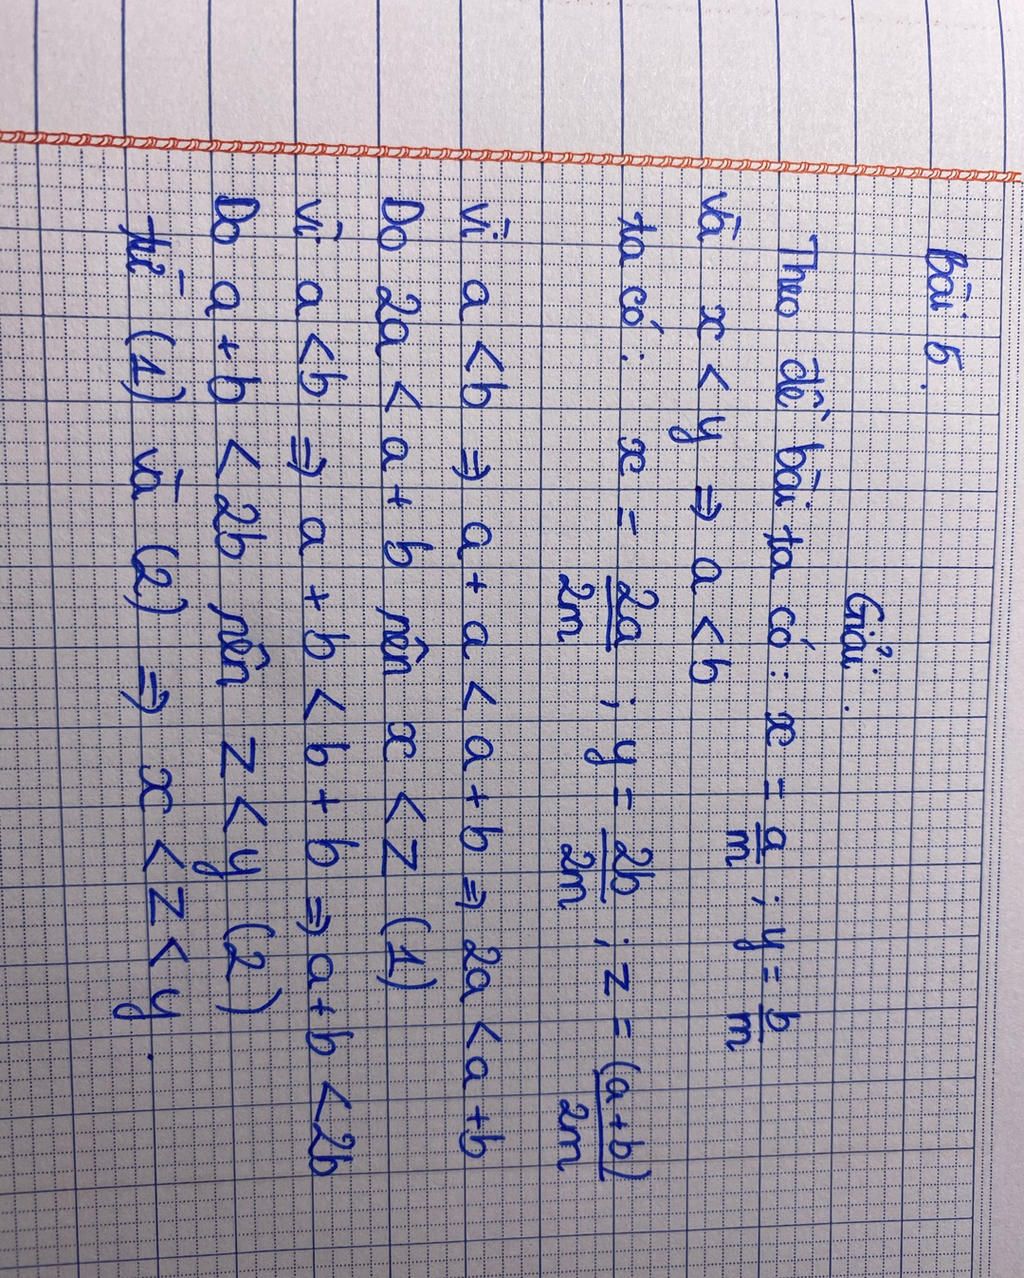 Bài 5.
Giải.
Theo đề bài ta có: x = a/m ; y = b/m
và x < y ⇒ a < b
ta có: x = 2a/2m ; y = 2b/2m ; z = (a+b)/2m
vì a < b ⇒ a + a < a + b ⇒ 2a < a + b
Do 2a < a + b nên x < z (1)
vì a < b ⇒ a + b < b + b ⇒ a + b < 2b
Do a + b < 2b nên z < y (2)
từ (1) và (2) ⇒ x < z < y.